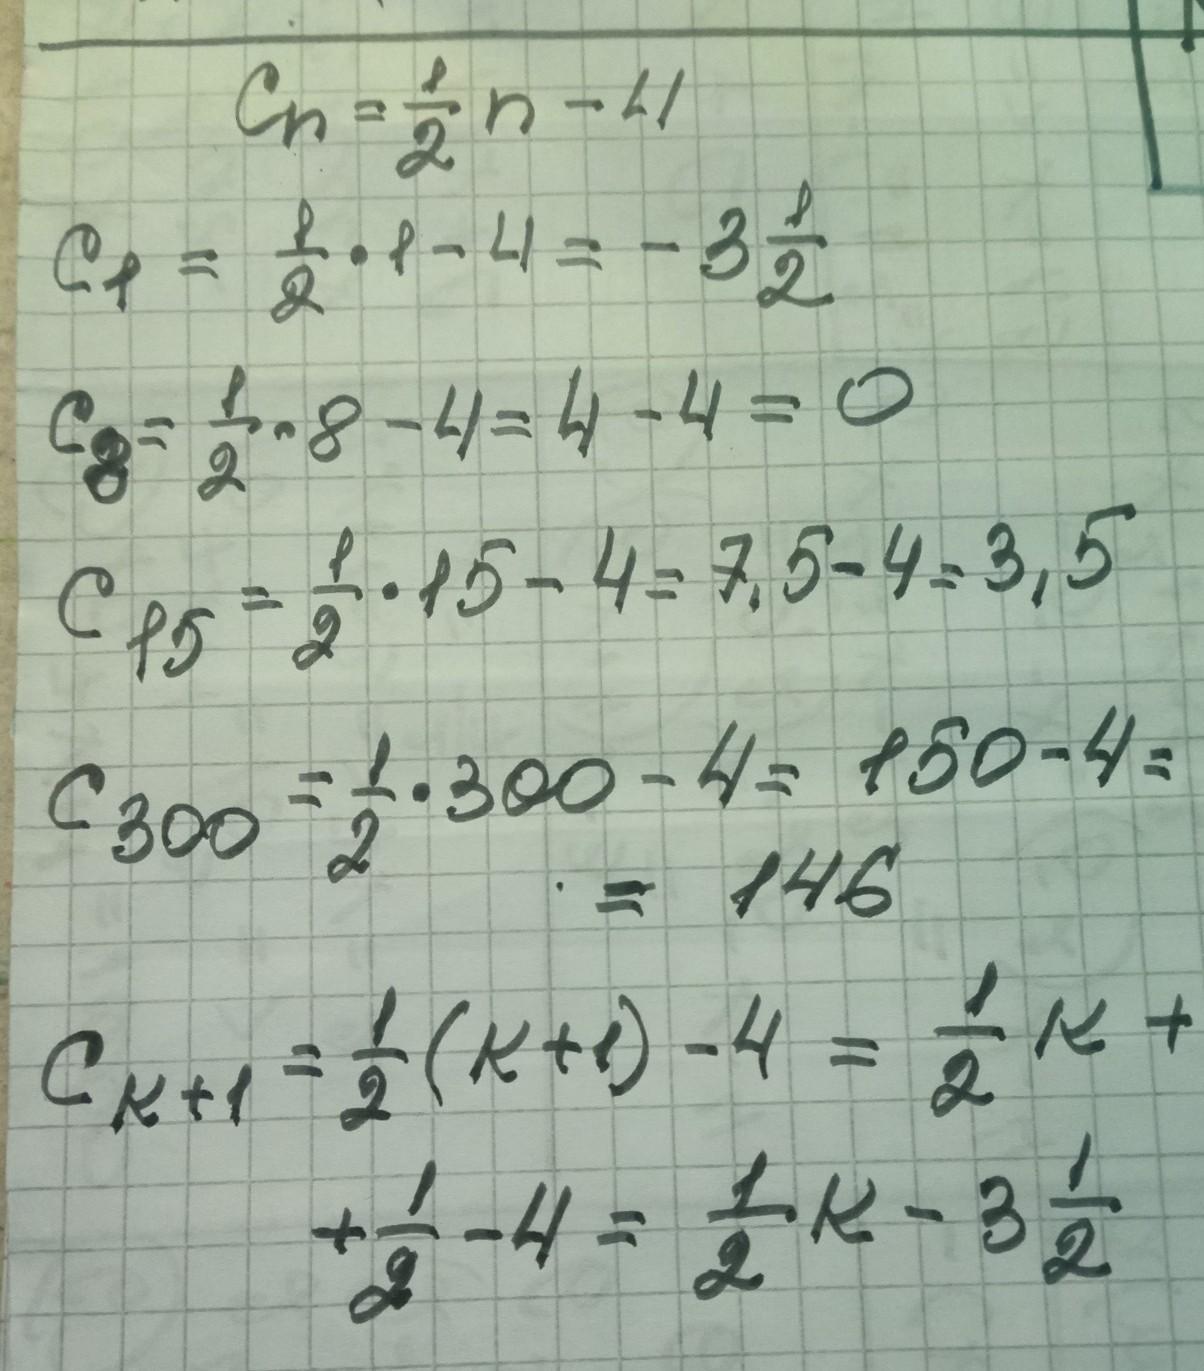 Cn = 1/2 n - 4
C1 = 1/2 · 1 - 4 = - 3 1/2
C8 = 1/2 · 8 - 4 = 4 - 4 = 0
C15 = 1/2 · 15 - 4 = 7,5 - 4 = 3,5
C300 = 1/2 · 300 - 4 = 150 - 4 =
= 146
Cк+1 = 1/2 (к+1) - 4 = 1/2 к +
+ 1/2 - 4 = 1/2 к - 3 1/2